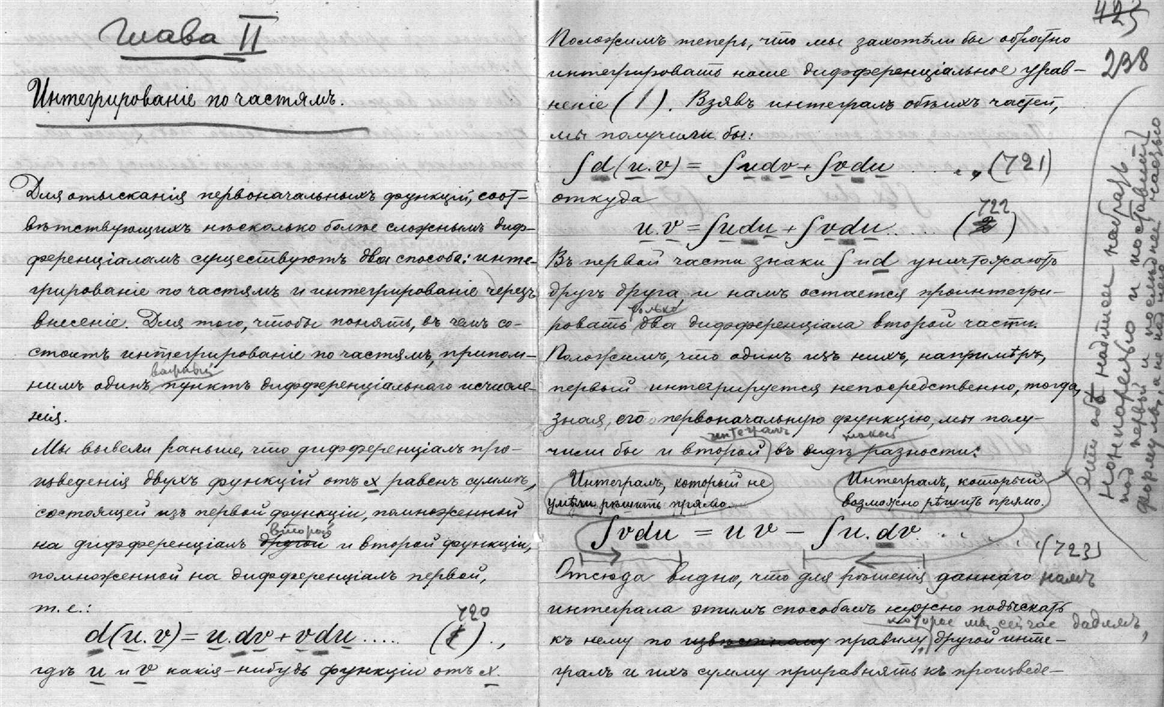 Глава II
Интегрированіе по частямъ.
Для отысканія первоначальныхъ функцій, соот-
вѣтствующихъ нѣсколько болѣе сложнымъ диф-
ференціаламъ существуютъ два способа: инте-
грированіе по частямъ и интегрированіе черезъ
внесеніе. Для того, чтобы понять, въ чемъ со-
стоитъ интегрированіе по частямъ, припом-
нимъ одинъ важный пунктъ дифференціальнаго исчисле-
нія.
Мы вывели раньше, что дифференціалъ про-
изведенія двухъ функцій отъ x равенъ суммѣ,
состоящей изъ первой функціи, помноженной
на дифференціалъ второй и второй функціи,
помноженной на дифференціалъ первой,
т. е.:
d(u.v) = u.dv + vdu ..... (720).,
гдѣ u и v какія-нибудь функціи отъ x.
423
238
Положимъ теперь, что мы захотѣли бы обратно
интегрировать наше дифференціальное урав-
неніе (1). Взявъ интегралъ обѣихъ частей,
мы получили бы:
∫d(u.v) = ∫udv + ∫vdu ..... (721)
откуда
u.v = ∫udu + ∫vdu ... (722)
Въ первой части знаки ∫ и d уничтожаютъ
другъ друга, и намъ остается проинтегри-
ровать только два дифференціала второй части.
Положимъ, что одинъ изъ нихъ, напримѣръ,
первый интегрируется непосредственно, тогда,
зная его первоначальную функцію, мы полу-
чили бы и второй интегралъ въ видѣ такой разности:
Интегралъ, который не
умѣли рѣшить прямо.
Интегралъ, который
возможно рѣшить прямо.
∫vdu = u v − ∫u.dv ... (723)
Отсюда видно, что для рѣшенія даннаго намъ
интеграла этимъ способомъ нужно подыскать
къ нему по правилу, которое мы сейчасъ дадимъ,
другой инте-
гралъ и ихъ сумму приравнять къ произведе-
Эти надписи набрать
нонпарелью и поставить
под первый и последней частью
формулы, а не над нею